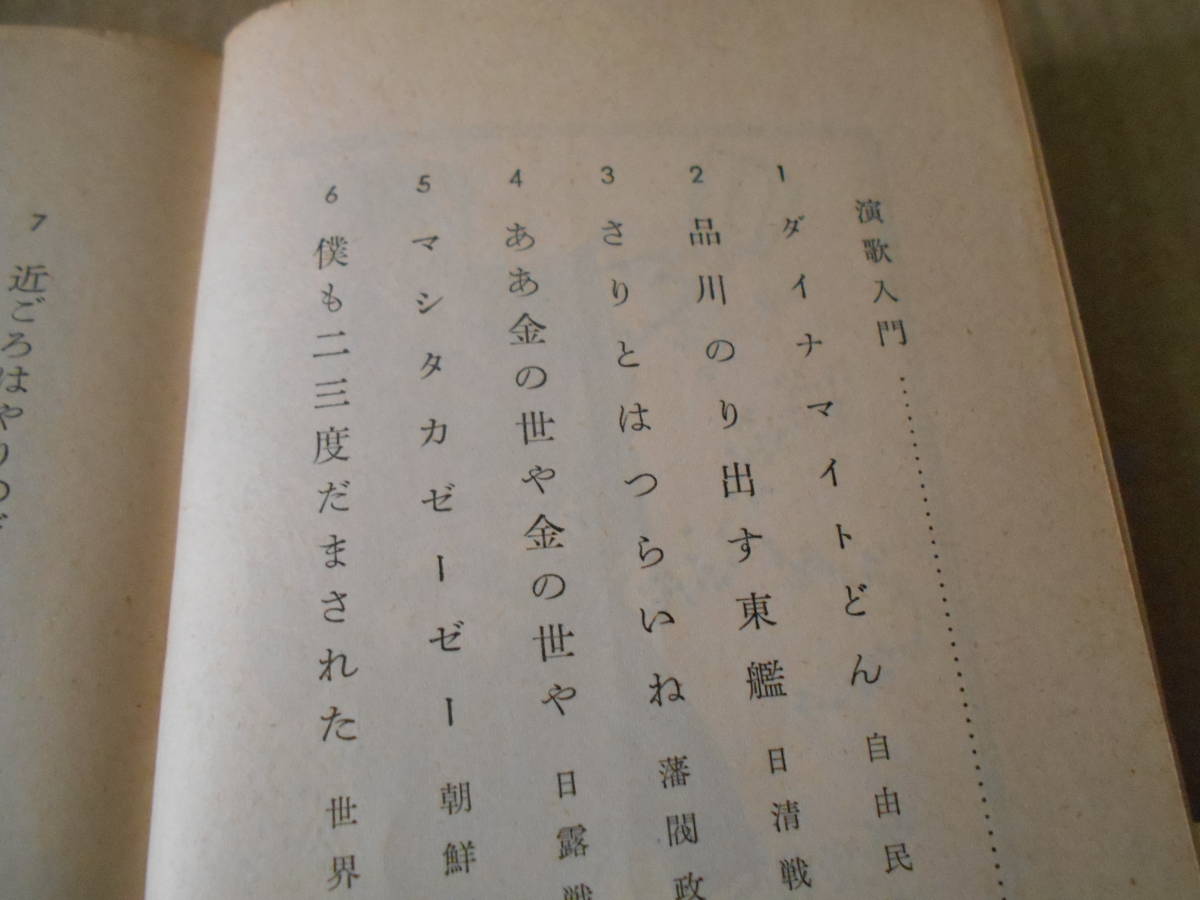 演歌入門…………
1 ダイナマイトどん 自由民
2 品川のり出す東艦 日清戦
3 さりとはつらいね 藩閥政
4 ああ金の世や金の世や 日露戦
5 マシタカゼーゼー 朝鮮
6 僕も二三度だまされた 世界
7 近ごろはやりの